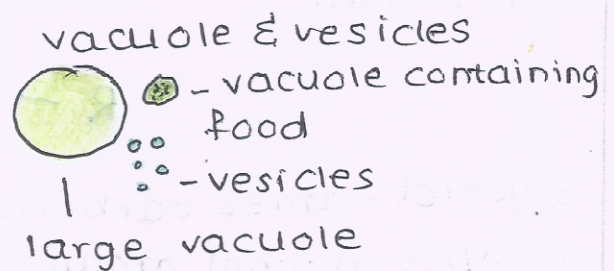 vacuole & vesicles
- vacuole containing
food
- vesicles
large vacuole